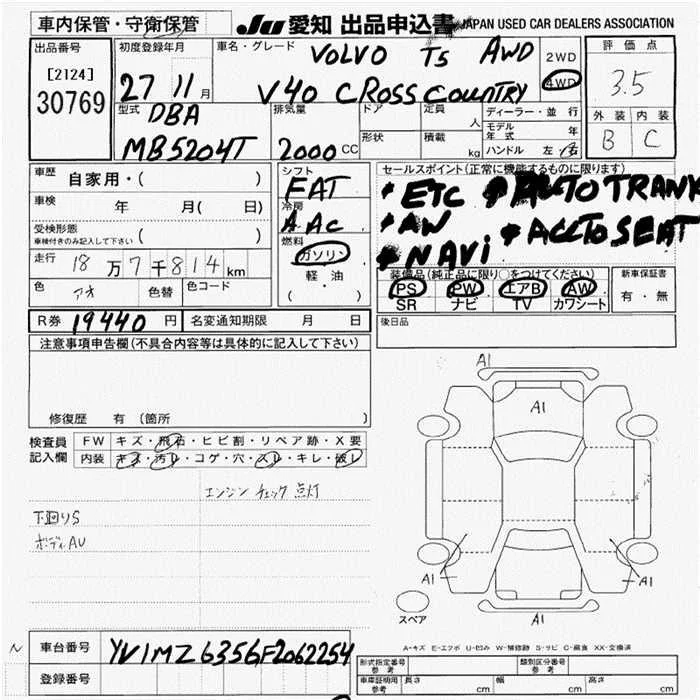 車内保管・守衛保管
JU 愛知 出品申込書 JAPAN USED CAR DEALERS ASSOCIATION
出品番号
[2124]
30769
初度登録年月
27 11月
車名・グレード
VOLVO T5 AWD
V40 CROSS COUNTRY
2WD
4WD
評価点
3.5
外装 内装
B C
型式
DBA
MB5204T
排気量
2000CC
ドア
形状
定員 人
積載 kg
ディーラー・並行
モデル年式 年
ハンドル 左・右
車歴
自家用・( )
車検 年 月( 日)
受検形態
車検付きのみ記入して下さい ( )
走行 18万7千814km
色 アオ 色替 色コード
シフト
FAT
冷房
AAC
燃料
ガソリン
軽油
( ・ )
セールスポイント(正常に機能するものに限ります)
* ETC * AUTO TRANK
* AW * ACCTO SEAT
* NAVi
装備品(純正品に限り○をつけてください)
PS PW エアB AW
SR ナビ TV カワシート
新車保証書
有・無
R券 19440円 名変通知期限 月 日
後日品
注意事項申告欄(不具合内容等は具体的に記入して下さい)
修復歴 有(箇所 )
検査員記入欄
FW キズ・飛石・ヒビ割・リペア跡・X要
内装 キズ・汚レ・コゲ・穴・スレ・キレ・破レ
エンジン チェック 点灯
下廻りS
ボディAU
A1
A1
A1
A1
A1
スペア
A・キズ E・エクボ U・凹み W・補修跡 S・サビ C・腐食 XX・交換済
N
車台番号 YV1MZ6356F2062254
登録番号
形式指定番号 参考
類別区分番号 参考
車庫証明用 参考
長さ cm 幅 cm 高さ cm